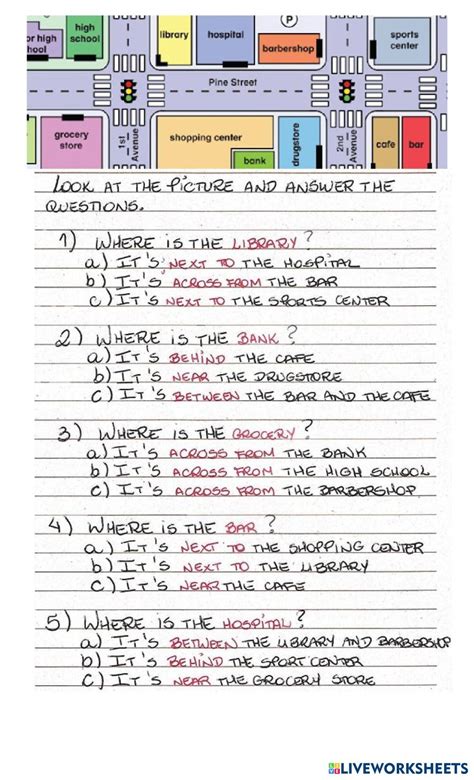 or high
hool
high
school
library
hospital
P
barbershop
sports
center
Pine Street
grocery
store
1st
Avenue
shopping center
bank
drugstore
2nd
Avenue
cafe
bar
LOOK AT THE PICTURE AND ANSWER THE
QUESTIONS.
1) WHERE IS THE LIBRARY?
a) IT'S NEXT TO THE HOSPITAL
b) IT'S ACROSS FROM THE BAR
c) IT'S NEXT TO THE SPORTS CENTER
2) WHERE IS THE BANK?
a) IT'S BEHIND THE CAFE
b) IT'S NEAR THE DRUGSTORE
c) IT'S BETWEEN THE BAR AND THE CAFE
3) WHERE IS THE GROCERY?
a) IT'S ACROSS FROM THE BANK
b) IT'S ACROSS FROM THE HIGH SCHOOL
c) IT'S ACROSS FROM THE BARBERSHOP
4) WHERE IS THE BAR?
a) IT'S NEXT TO THE SHOPPING CENTER
b) IT'S NEXT TO THE LIBRARY
c) IT'S NEAR THE CAFE
5) WHERE IS THE HOSPITAL?
a) IT'S BETWEEN THE LIBRARY AND BARBERSHOP
b) IT'S BEHIND THE SPORT CENTER
c) IT'S NEAR THE GROCERY STORE
LIVEWORKSHEETS